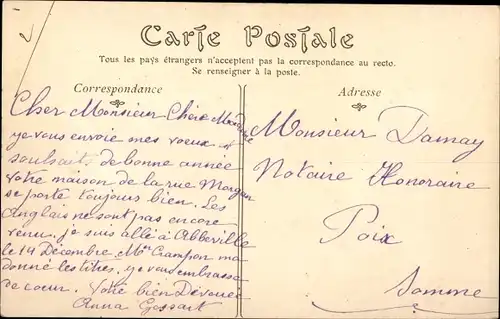 Carte Postale
Tous les pays étrangers n'acceptent pas la correspondance au recto.
Se renseigner à la poste.
Correspondance
Cher Monsieur Chère Madame
je vous envoie mes voeux et
souhaits de bonne année
Votre maison de la rue Morgan
se porte toujours bien. Les
Anglais ne sont pas encore
venu. je suis allé à Abbeville
le 14 Décembre. Mtre Crampon ma
donné les titres. je vous embrasse
de coeur. Votre bien Dévouée
Anna Gossart
Adresse
Monsieur Damay
Notaire Honoraire
Poix
Somme